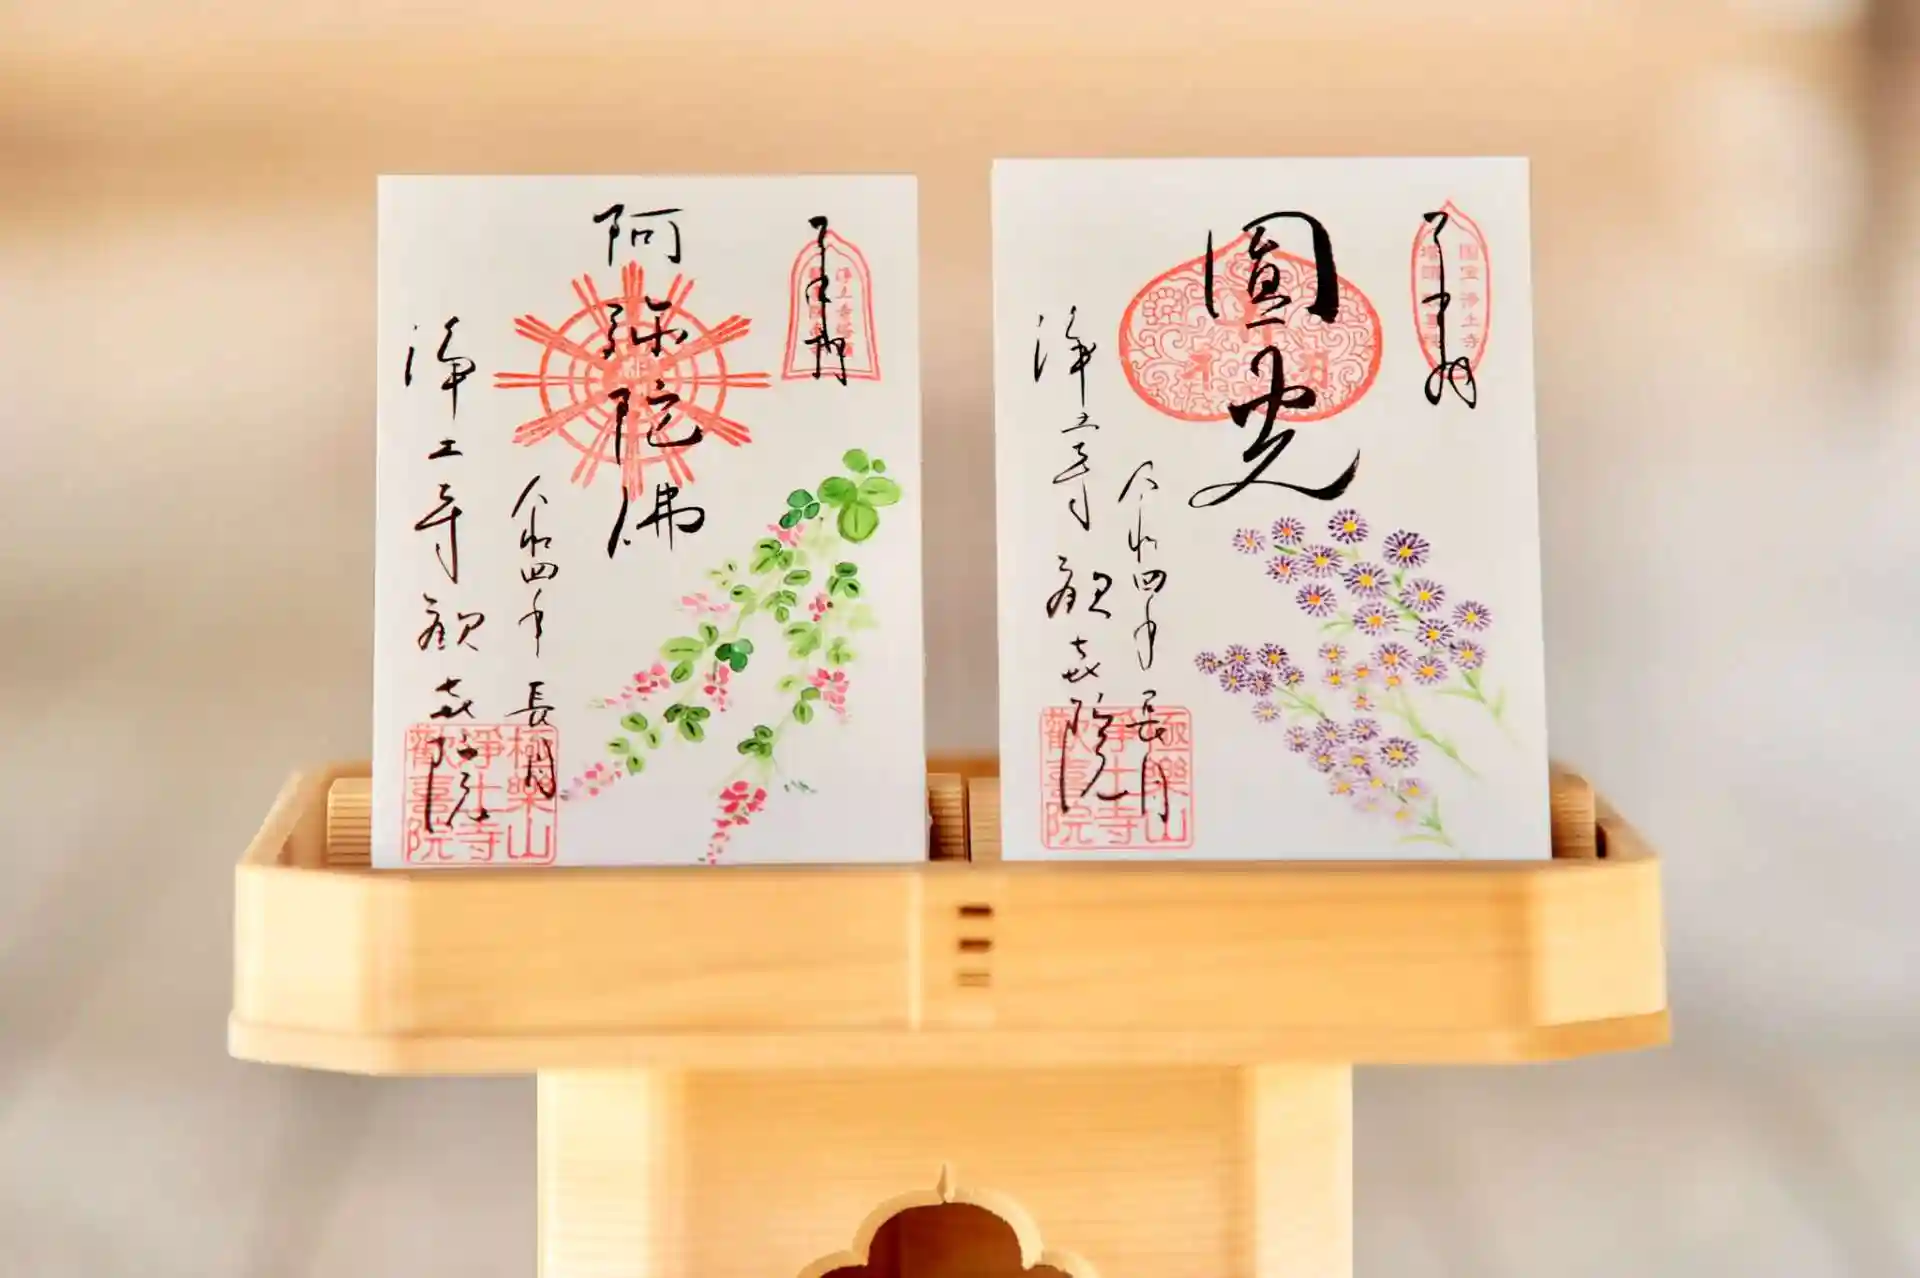 阿弥陀佛
令和四年 長月
浄土寺歓喜院
極樂山
浄土寺
歡喜院
圓光
国宝浄土寺
令和四年 長月
浄土寺歓喜院
極樂山
浄土寺
歡喜院